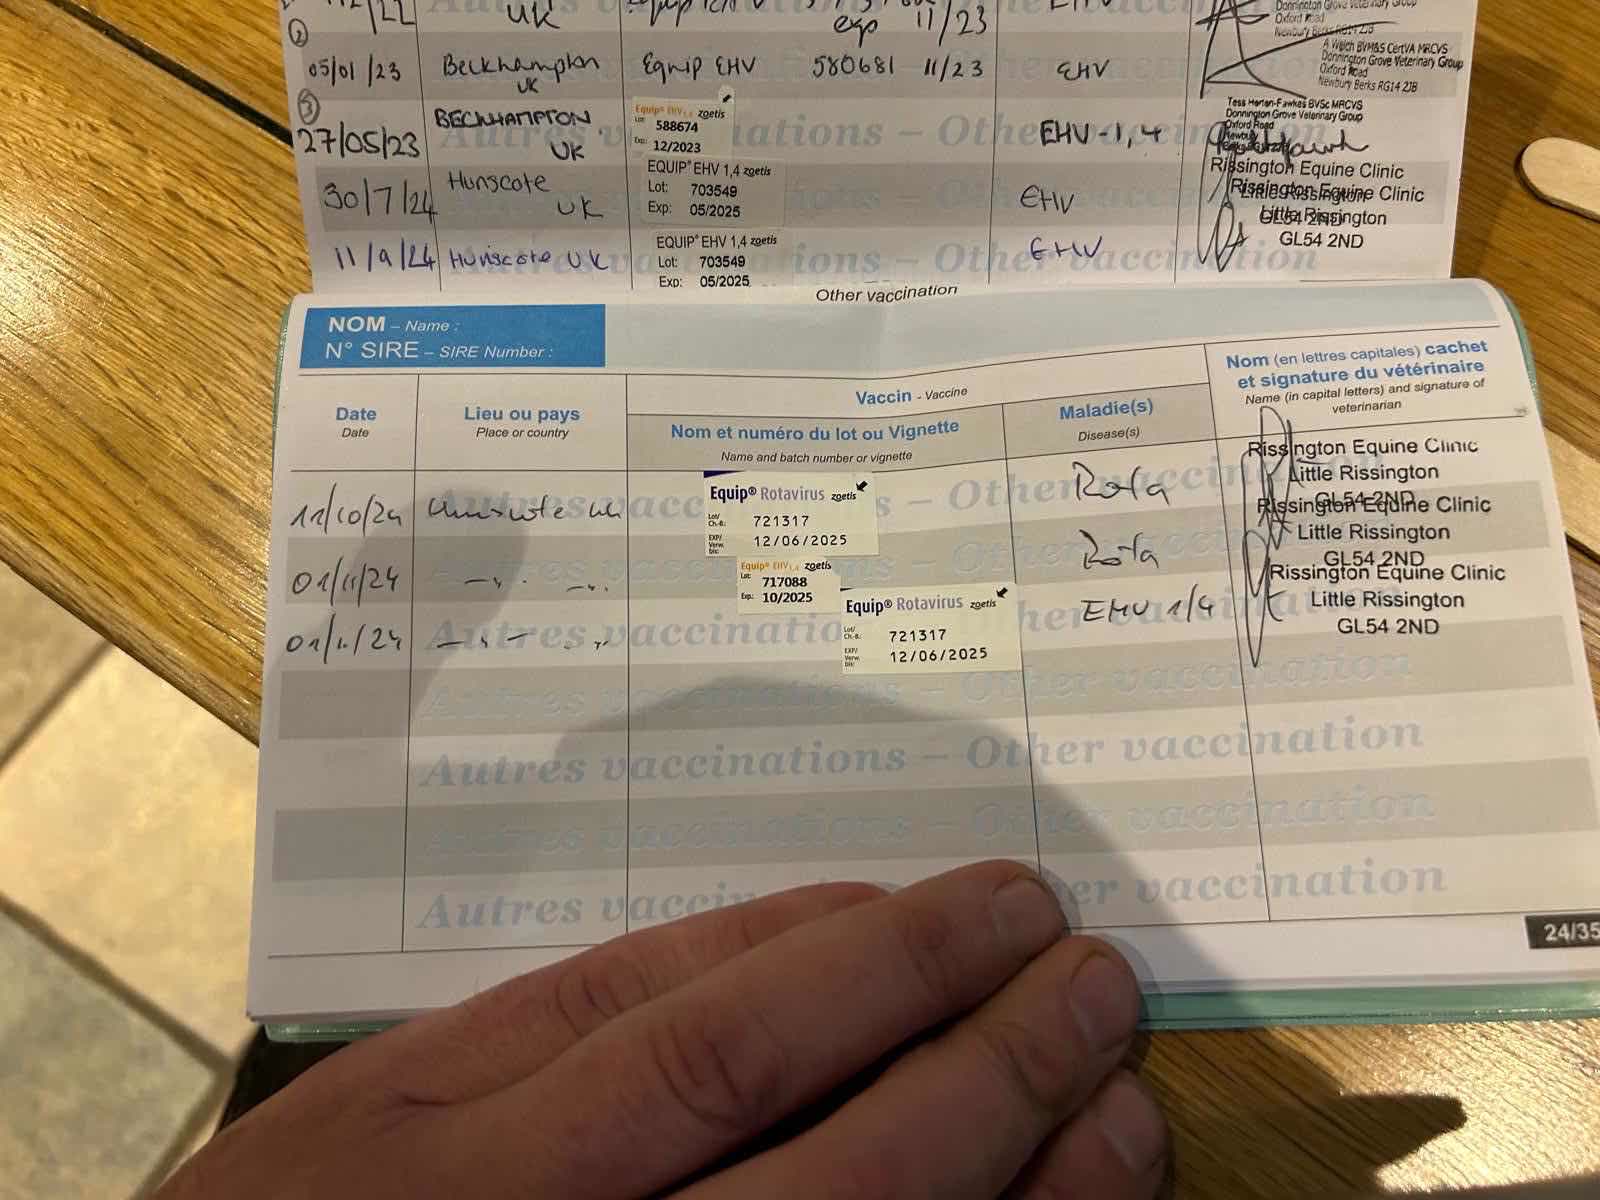 UK
exp 11/23
Donnington Grove Veterinary Group
Oxford Road
Newbury Berks RG14 2JB
2
05/01/23 Beckhampton UK Equip EHV 580681 11/23 EHV
A Welch BVM&S CertVA MRCVS
Donnington Grove Veterinary Group
Oxford Road
Newbury Berks RG14 2JB
3
27/05/23 BECKHAMPTON UK
Equip® EHV 1,4 zoetis
Lot: 588674
Exp: 12/2023
EHV-1,4
Tess Horton-Fawkes BVSc MRCVS
Donnington Grove Veterinary Group
Oxford Road
Newbury
30/7/24 Hunscote UK
EQUIP® EHV 1,4 zoetis
Lot: 703549
Exp: 05/2025
EHV
Rissington Equine Clinic
Little Rissington
GL54 2ND
11/9/24 Hunscote UK
EQUIP® EHV 1,4 zoetis
Lot: 703549
Exp: 05/2025
EHV
Rissington Equine Clinic
Little Rissington
GL54 2ND
Other vaccination
NOM – Name :
N° SIRE – SIRE Number :
Date
Date
Lieu ou pays
Place or country
Vaccin - Vaccine
Nom et numéro du lot ou Vignette
Name and batch number or vignette
Maladie(s)
Disease(s)
Nom (en lettres capitales) cachet
et signature du vétérinaire
Name (in capital letters) and signature of
veterinarian
11/10/24 Hunscote UK
Equip® Rotavirus zoetis
Lot/
Ch.-B.: 721317
EXP/
Verw.
bis: 12/06/2025
Rota
Rissington Equine Clinic
Little Rissington
GL54 2ND
01/11/24
Equip® EHV 1,4 zoetis
Lot: 717088
Exp.: 10/2025
Rota
Rissington Equine Clinic
Little Rissington
GL54 2ND
01/11/24
Equip® Rotavirus zoetis
Lot/
Ch.-B.: 721317
EXP/
Verw.
bis: 12/06/2025
EHV 1/4
Rissington Equine Clinic
Little Rissington
GL54 2ND
Autres vaccinations – Other vaccination
Autres vaccinations – Other vaccination
Autres vaccinations – Other vaccination
Autres vaccinations – Other vaccination
24/35